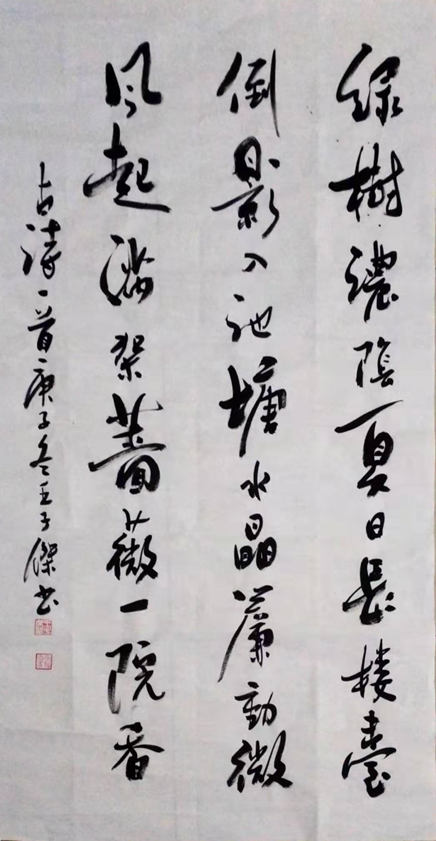 绿樹濃陰夏日長楼臺
倒影入池塘水晶簾動微
风起满架薔薇一院香
古诗一首庚子冬王子傑书